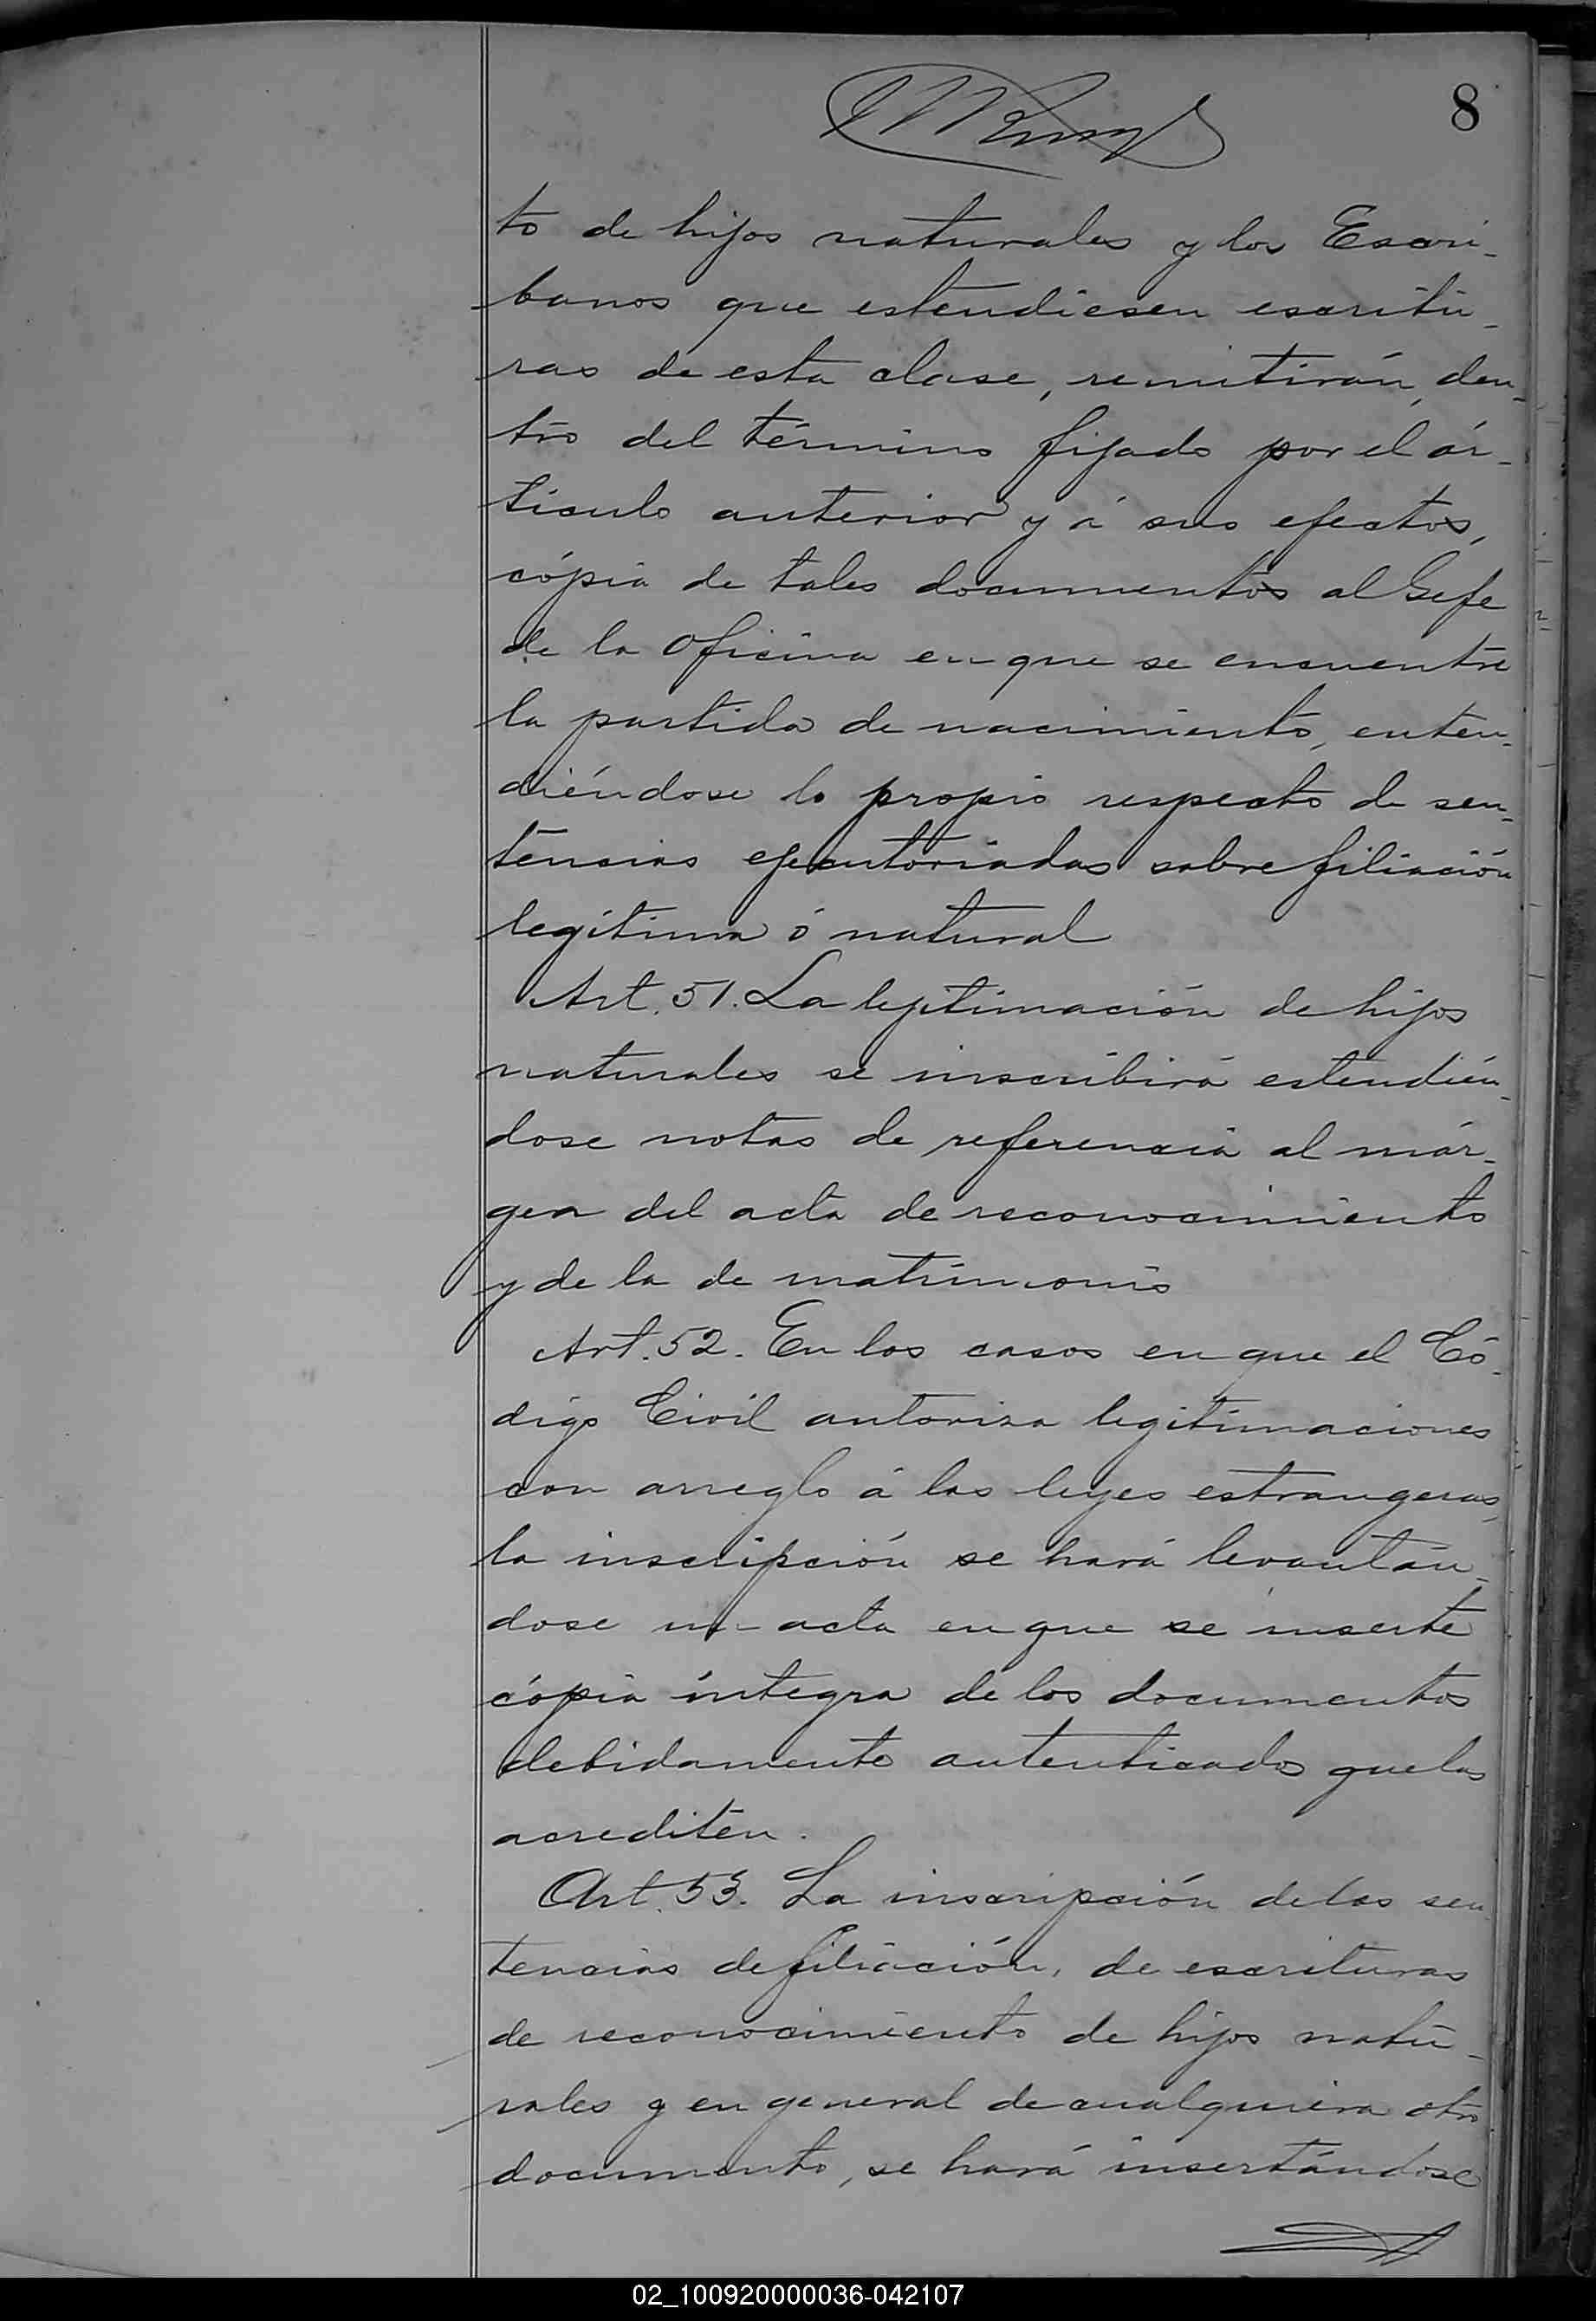 8
to de hijos naturales y los Escri-
banos que estendiesen escritu-
ras de esta clase, remitirán, den-
tro del término fijado por el ár-
tículo anterior y á sus efectos,
cópia de tales documentos al Gefe
de la Oficina en que se encuentre
la partida de nacimiento, enten-
diéndose lo propio respecto de sen-
tencias ejecutoriadas sobre filiación
legítima ó natural
Art. 51. La legitimación de hijos
naturales se inscribirá estendién-
dose notas de referencia al már-
gen del acta de reconocimiento
y de la de matrimonio
Art. 52. En los casos en que el Có-
digo Civil autoriza legitimaciones
con arreglo á las leyes estrangeras,
la inscripción se hará levantán-
dose un acta en que se inserte
cópia íntegra de los documentos
debidamente autenticados que las
acrediten.
Art. 53. La inscripción de las sen
tencias de filiación, de escrituras
de reconocimiento de hijos natu-
rales y en general de cualquiera otro
documento, se hará insertándose
02_100920000036-042107